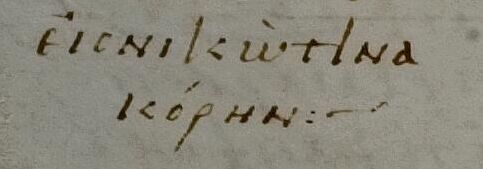 ἐις νικὼτινα
κόρην:~